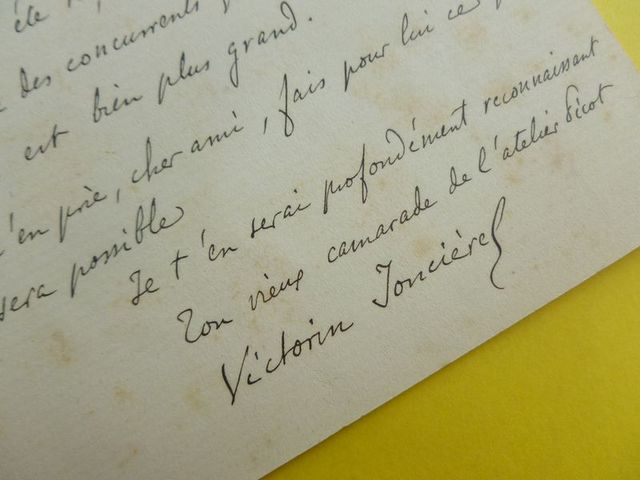 été
des concurrents
est bien plus grand.
t'en prie, cher ami, fais pour lui ce
sera possible
Je t'en serai profondément reconnaissant
Ton vieux camarade de l'atelier Picot
Victorin Joncières